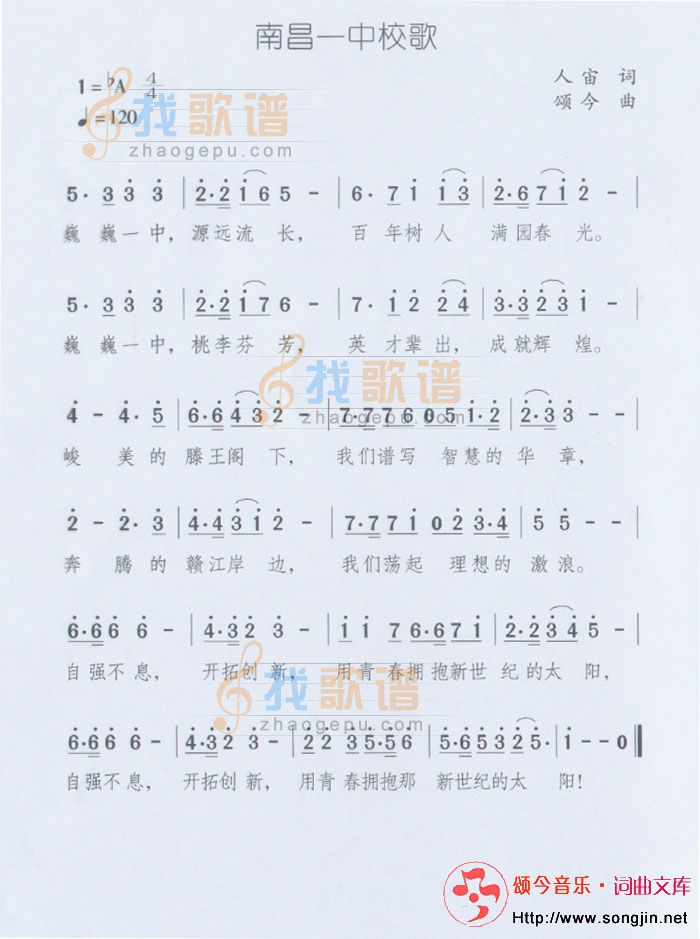 南昌一中校歌
1=♭A 4/4
人宙 词
♩=120
颂今 曲
找歌谱
zhaogepu.com
5· 3 3 3 | 2·2 1 6 5 - | 6· 7 1 1 3 | 2·6 7 1 2 - |
巍 巍一中，源远流 长， 百 年树人 满园春 光。
5· 3 3 3 | 2·2 1 7 6 - | 7· 1 2 2 4 | 3·3 2 3 1 - |
巍 巍一中，桃李芬 芳， 英 才辈 出， 成就辉 煌。
4 - 4· 5 | 6·6 4 3 2 - | 7·7 7 6 0 5 1·2 | 2·3 3 - - |
找歌谱
zhaogepu.com
峻 美的 滕王阁 下， 我们谱写 智慧的 华 章，
2 - 2· 3 | 4·4 3 1 2 - | 7·7 7 1 0 2 3·4 | 5 5 - - |
奔 腾的 赣江岸 边， 我们荡起 理想的 激浪。
6·6 6 6 - | 4·3 2 3 - | 1 1 7 6·6 7 1 | 2·2 3 4 5 - |
自强不息， 开拓创新， 用青 春拥抱新世 纪的太 阳，
找歌谱
zhaogepu.com
6·6 6 6 - | 4·3 2 3 - | 2 2 3 5·5 6 | 5·6 5 3 2 5· | 1 - - 0 ‖
自强不息， 开拓创新， 用青 春拥抱那 新世纪的太 阳！
颂今音乐·词曲文库
Http://www.songjin.net